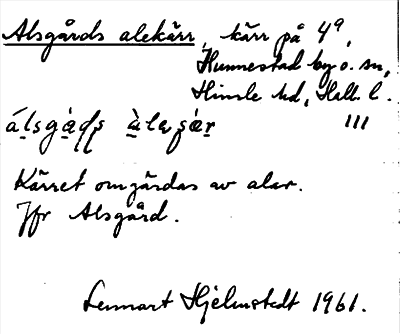 Alsgårds alekärr, kärr på 4ª,
Hunnestad by o. sn,
Himle hd, Hall. l.
III
Kärret omgärdas av alar.
Jfr Alsgård.
Lennart Hjelmstedt 1961.